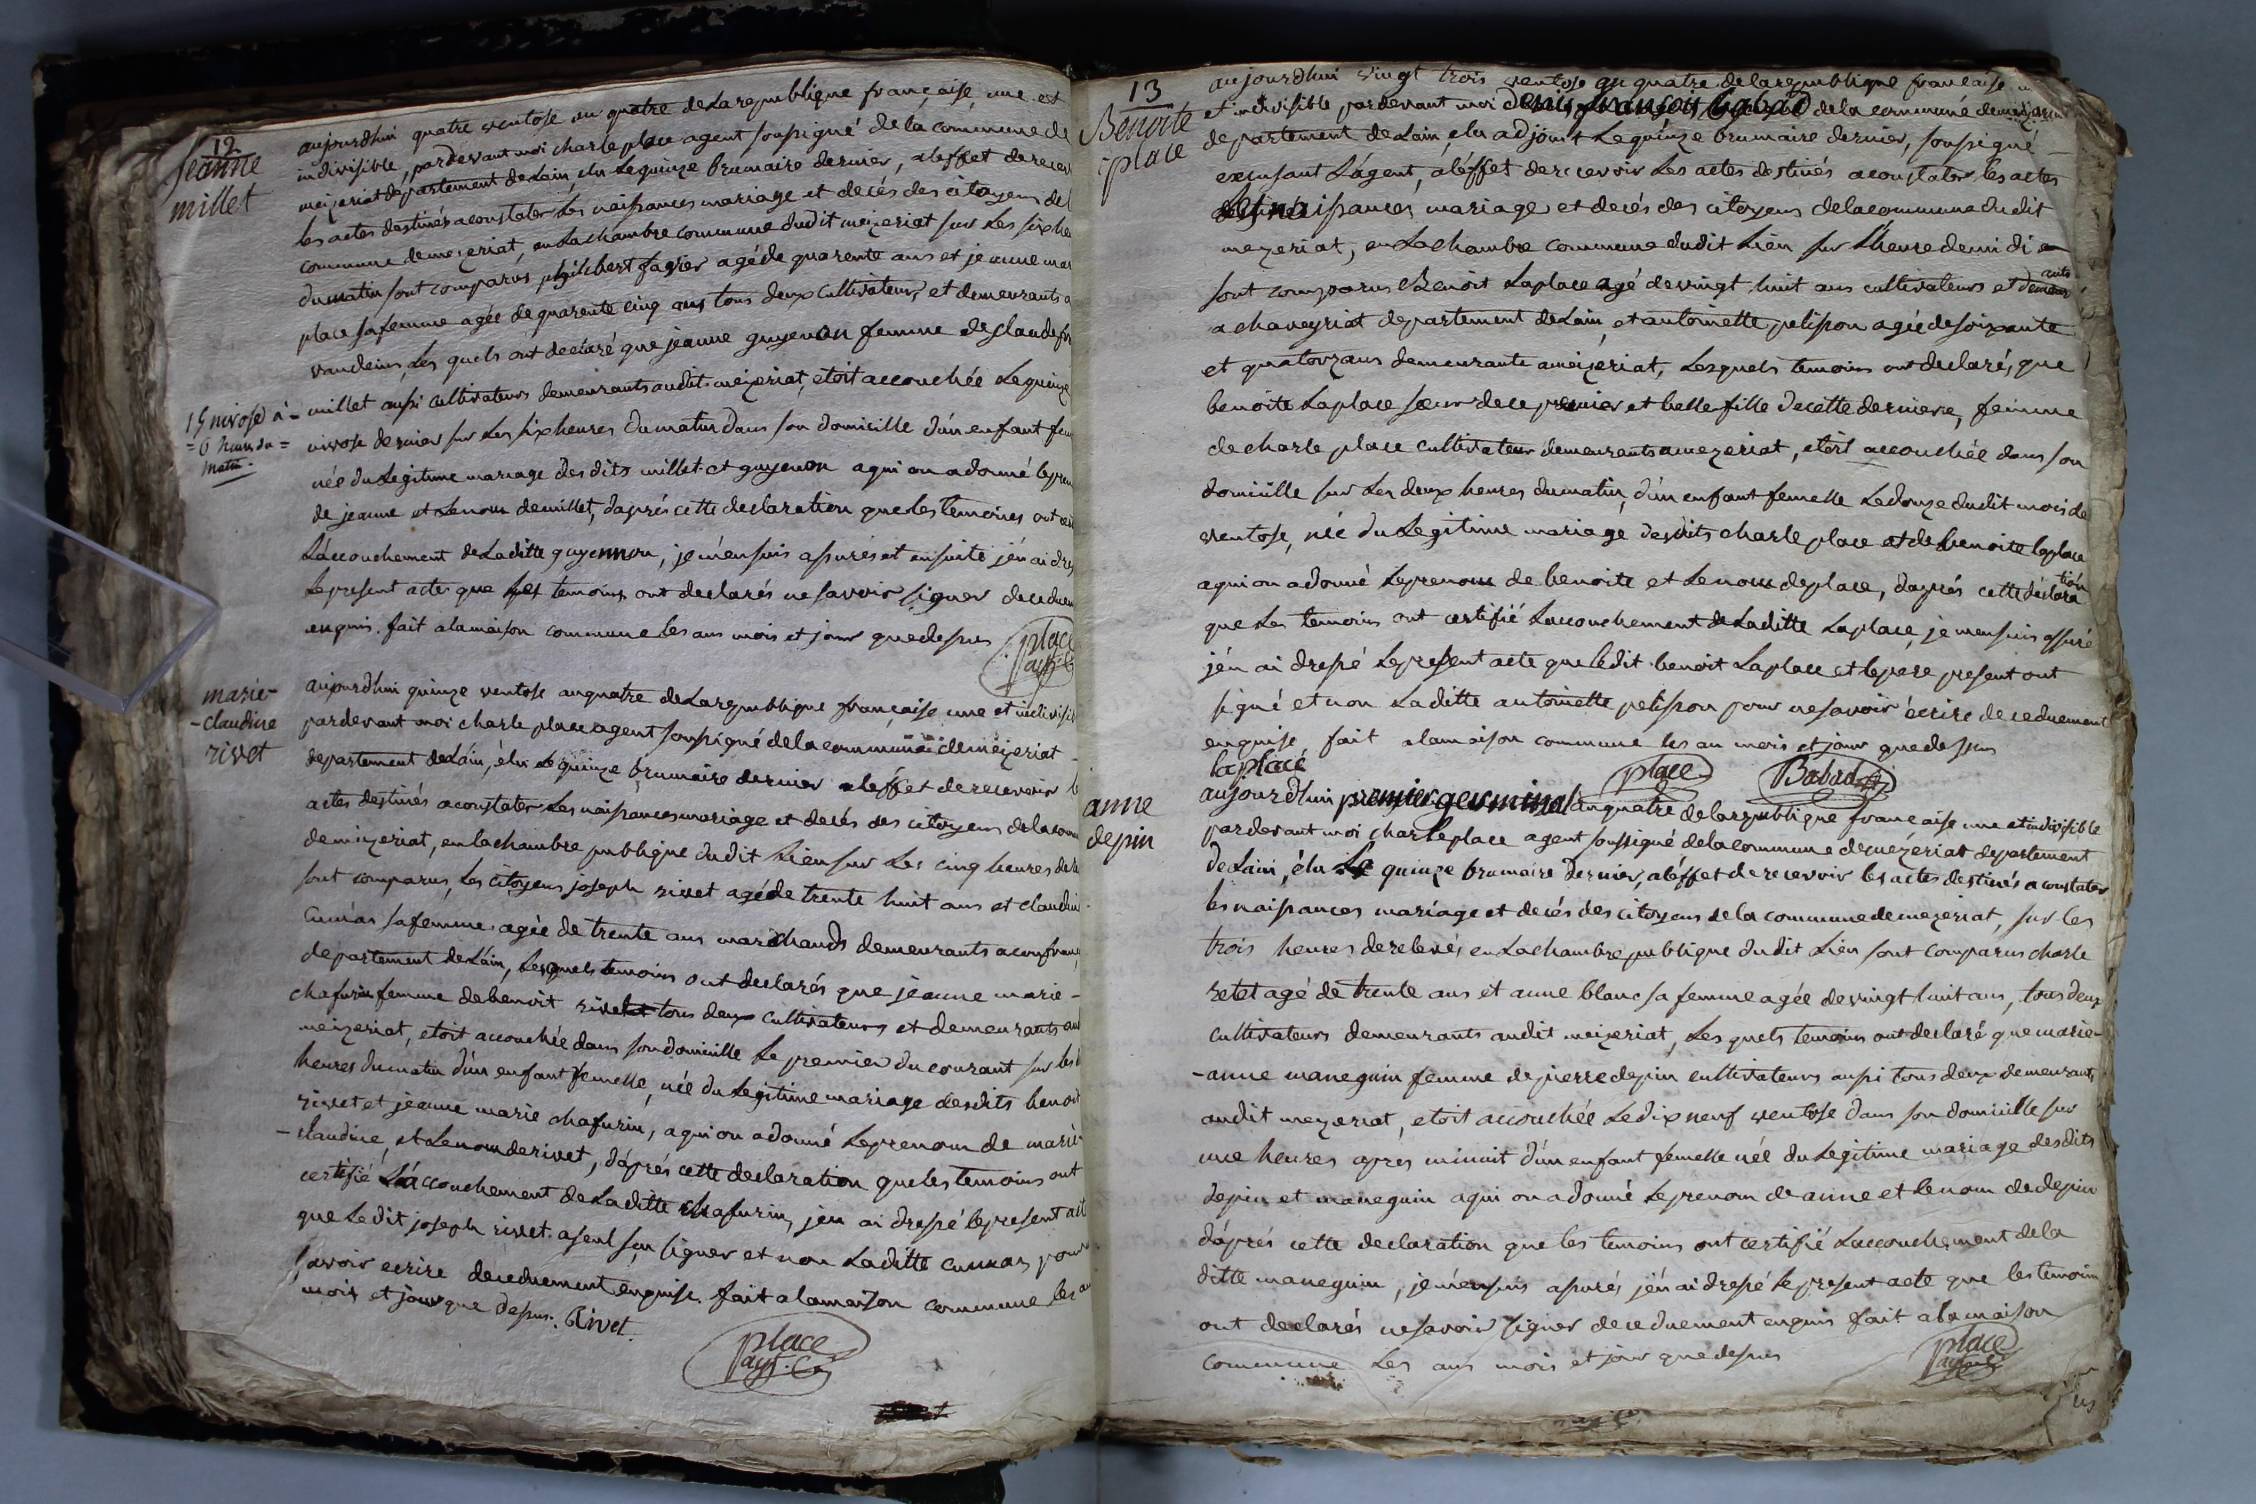 12
jeanne
millet
aujourdhui quatre ventose an quatre de La republique française, une et
indivisible, pardevant moi charle place agent soussigné de la commune de
meizeriat departement de Lain, élu Le quinze brumaire dernier, aleffet de recev
les actes destinés a constater Les naissances mariage et decés des citoyens de l
commune de mezeriat, en La chambre commune dudit meizeriat sur Les six heu
du matin sont comparus, philibert favier agé de quarente ans et jeanne mar
place sa femme agée de quarente cinq ans tous deux cultivateurs, et demeurants a
vandeins, Les quels ont declaré que jeanne guyenon femme de claude fr
millet aussi cultivateurs demeurants audit meizeriat, étoit accouchée Le quinze
15 nivose à
= 6 heures du =
matin.
nivose dernier sur Les six heures du matin dans son domicille d'un enfant fem
née du Legitime mariage des dits millet et guyenon a qui on a donné le pren
de jeanne et Le nom de millet, d'aprés cette declaration que Les temoins ont cer
L'accouchement de La ditte guyennon, je m'en suis assurés et ensuite j'en ai dres
Le present actes que Les temoins ont declarés ne savoir signer de ce duem
enquis. fait a la maison commune les ans mois et jour que dessus
place
agt. C
marie-
-claudine
rivet
aujourdhui quinze ventose an quatre de La republique française une et indivisib
pardevant moi charle place agent soussigné de la commune de meizeriat
departement de Lain, élu Le quinze brumaire dernier aleffet de recevoir l
actes destinés a constater Les naissances mariage et decés des citoyens de la comm
de mizeriat, en la chambre publique du dit Lieu sur Les cinq heures de
sont comparus, Les citoyens joseph rivet agé de trente huit ans et claudin
cunéas sa femme agée de trente ans marchands demeurants a confranç
departement de Lain, Lesquels temoins ont declarés que jeanne marie -
chafurin femme de benoit rivet tous deux cultivateurs et demeurants aud
meizeriat, etoit accouchée dans son domicille Le premier du courant sur les
heures du matin d'un enfant femelle, née du Legitime mariage desdits benoit
rivet et jeanne marie chafurin, a qui on a donné Le prenom de marie-
- claudine, et Le nom de rivet, d'aprés cette declaration que les temoins ont
certifié L'accouchement de La ditte chafurin, jen ai dressé le present act
que Ledit joseph rivet a seul su signer et non La ditte cuneas pour
savoir ecrire de ce duement enquise. fait a la maison commune les an
mois et jour que dessus. Rivet.
place
agt. C
13
Benoite
place
aujourdhui vingt trois ventose an quatre de la republique francaise
et indivisible pardevant moi denis françois babad de la commune de mezeriat
departement de Lain, elu adjoint Le quinze brumaire dernier, soussigné
excusant L'agent, a l'effet de recevoir Les actes destinés a constater les actes
naissances mariage et decés des citoyens de la commune du dit
mezeriat, en La chambre commune dudit Lieu sur L'heure de midi
sont comparus Benoit Laplace agé de vingt huit ans cultivateurs et demeurants
a chaveyriat departement de Lain, et antoinette pelisson agée de soixante
et quatorz ans demeurante a meizeriat, Lesquels temoins ont declaré, que
benoite Laplace sœur de ce premier et belle fille de cette derniere, femme
de charle place cultivateur demeurants a mezeriat, etoit accouchée dans son
domicille sur Les deux heures du matin, d'un enfant femelle Le douze dudit mois de
ventose, née du Legitime mariage desdits charle place et de benoite laplace
a qui on a donné Le prenom de benoite et Le nom de place, d'aprés cette déclaration
que Les temoins ont certifié L'accouchement de La ditte Laplace, je m'en suis assuré
j'en ai dressé Le present acte que Ledit benoit Laplace et le pere present ont
signé et non La ditte antoinette pelisson pour ne savoir écrire de ce duement
enquise fait a la maison commune les an mois et jour que dessus
laplace place Babad
anne
depin
aujourdhui premier germinal an quatre de la republique francaise une et indivisible
pardevant moi charle place agent soussigné de la commune de mezériat departement
de Lain, élu Le quinze brumaire dernier, aléffet de recevoir les actes destinés a constater
les naissances mariage et decés des citoyens de la commune de mezeriat, sur les
trois heures de relevés en La chambre publique du dit Lieu sont comparus charle
retet agé de trente ans et anne blanc sa femme agée de vingt huit ans, tous deux
cultivateurs demeurants audit meizeriat, Les quels temoins ont declaré que marie
-anne maneguin femme de pierre depin cultivateurs aussi tous deux demeurants
audit mezeriat, etoit accouchée Le dix neuf ventose dans son domicille sur
une heures apres minuit d'un enfant femelle née du Legitime mariage desdits
depin et maneguin a qui on a donné Le prenom de anne et le nom de depin
d'aprés cette declaration que les temoins ont certifié L'accouchement de la
ditte maneguin, je m'en suis assurés j'en ai dressé Le present acte que les temoins
ont declarés ne savoir signer de ce duement enquis fait a la maison
commune Les ans mois et jour que dessus
place
agt C